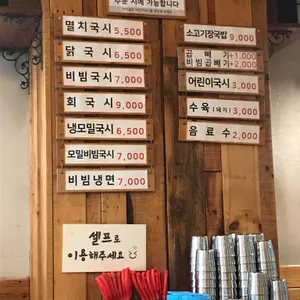 주문 시에 가능합니다
멸치국수 5,500
닭국수 6,500
비빔국수 7,000
회국수 9,000
냉모밀국수 6,500
모밀비빔국수 7,000
비빔냉면 7,000
소고기장국밥 9,000
곱빼기 +1,000
비빔곱빼기 +2,000
어린이국수 3,000
수육(돼지) 3,000
음료수 2,000
셀프로
이용해주세요